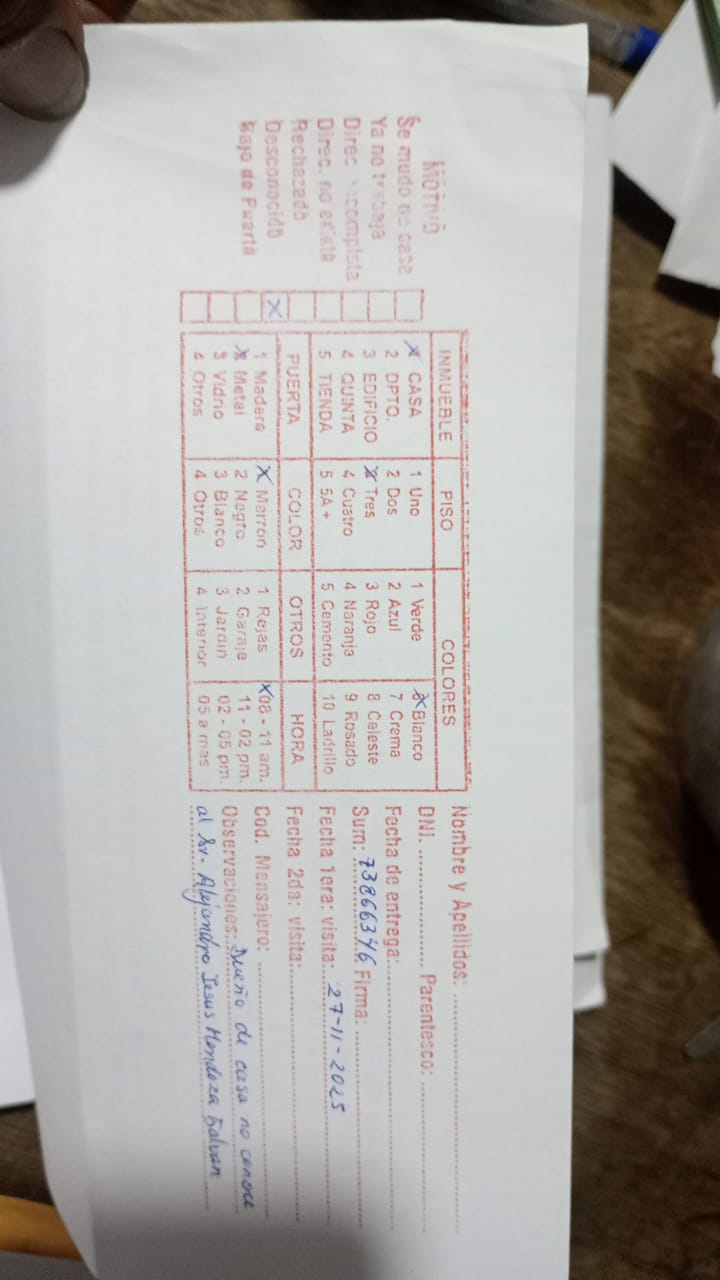 MOTIVO
Se mudo de casa
Ya no trabaja
Direc. incompleta
Direc. no existe
Rechazado
Desconocido X
Bajo de Puerta
INMUEBLE PISO COLORES
X CASA 1 Uno 1 Verde X Blanco
2 DPTO. 2 Dos 2 Azul 7 Crema
3 EDIFICIO X Tres 3 Rojo 8 Celeste
4 QUINTA 4 Cuatro 4 Naranja 9 Rosado
5 TIENDA 5 5A + 5 Cemento 10 Ladrillo
PUERTA COLOR OTROS HORA
1 Madera X Marrón 1 Rejas X 08 - 11 am.
X Metal 2 Negro 2 Garaje 11 - 02 pm.
3 Vidrio 3 Blanco 3 Jardín 02 - 05 pm.
4 Otros 4 Otros 4 Interior 05 a mas
Nombre y Apellidos:
DNI. Parentesco:
Fecha de entrega:
Sum: 73866346 Firma:
Fecha 1era: visita: 27-11-2025
Fecha 2da: visita:
Cod. Mensajero:
Observaciones: Dueño de casa no conoce
al Sr. Alejandro Jesus Mendoza Galvan